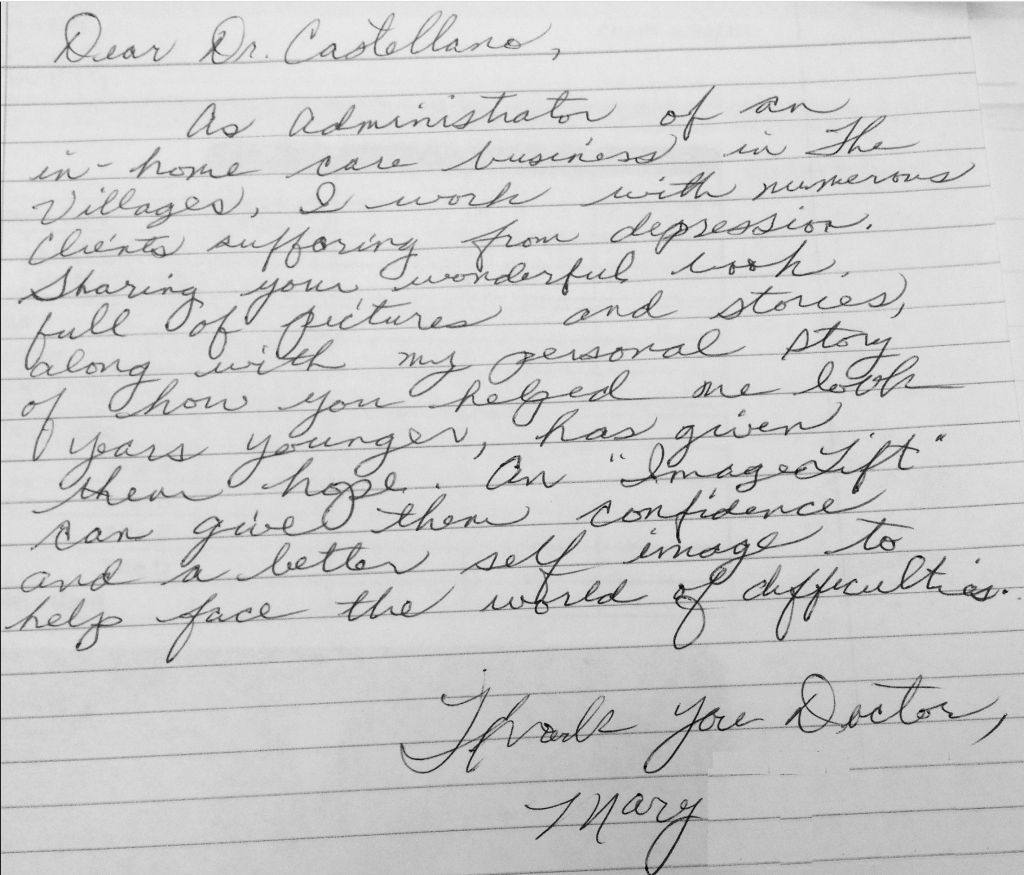 Dear Dr. Castellano,
As Administrator of an
in-home care business in The
Villages, I work with numerous
Clients suffering from depression.
Sharing your wonderful book,
full of pictures and stories,
along with my personal story
of how you helped me look
years younger, has given
them hope. An "Image Lift"
can give them confidence
and a better self image to
help face the world of difficulties.
Thank you Doctor,
Mary